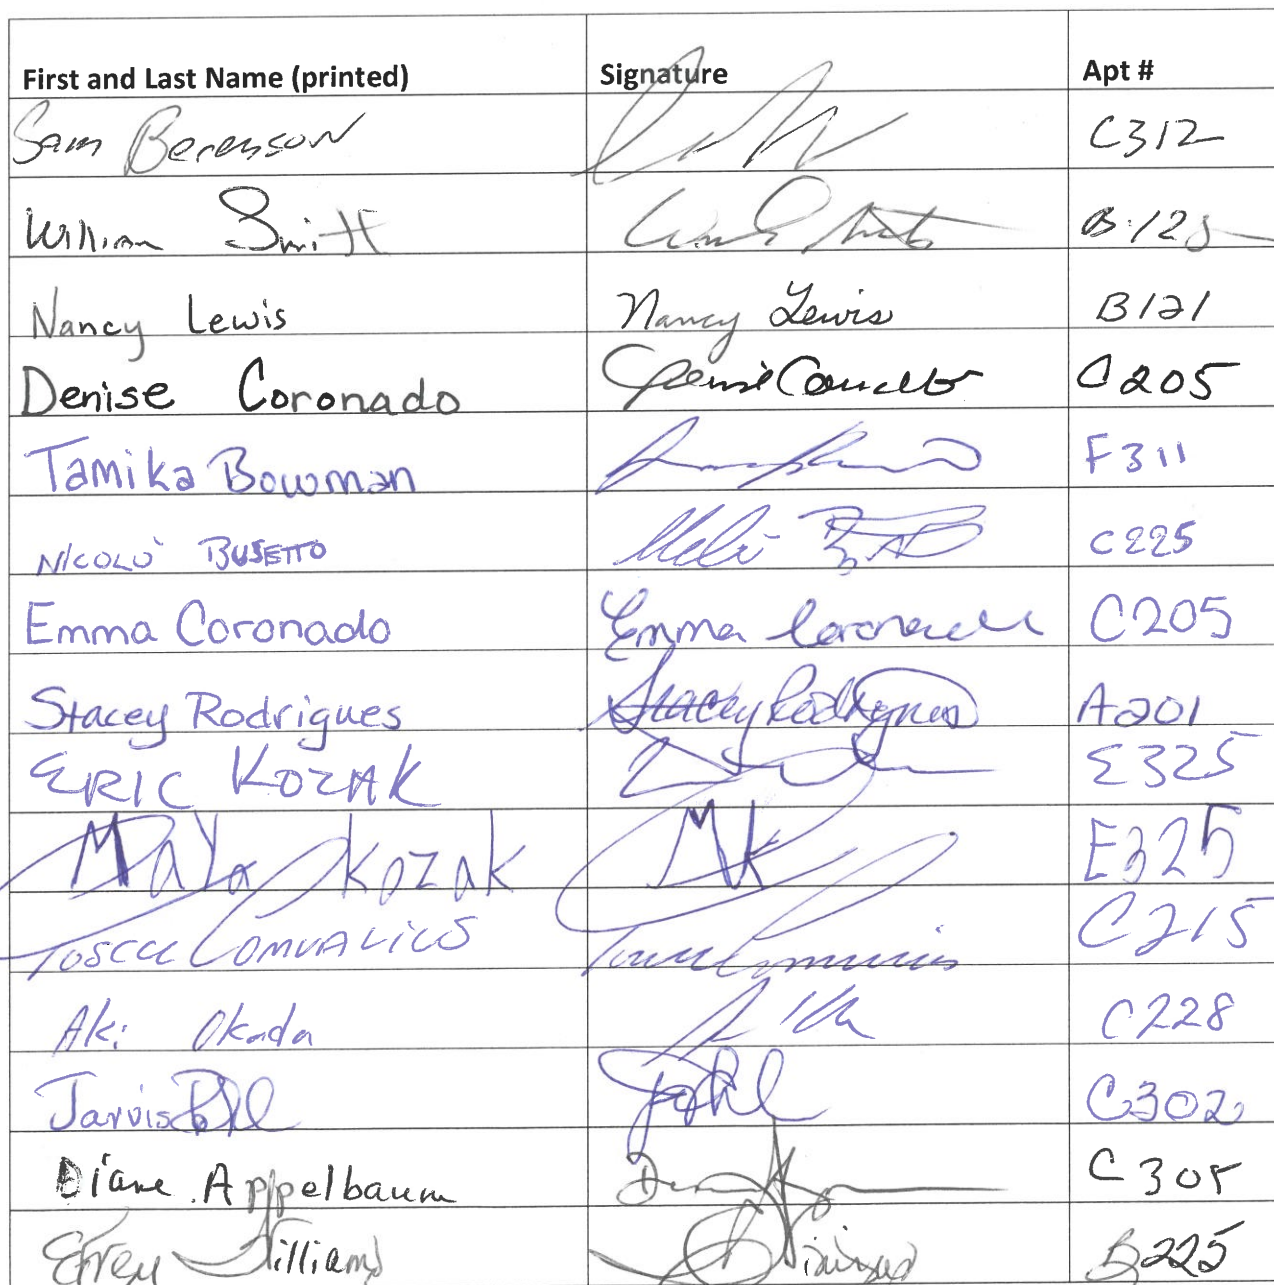 First and Last Name (printed) Signature Apt #
Sam Berenson C312
William Smitt B125
Nancy Lewis Nancy Lewis B121
Denise Coronado C205
Tamika Bowman F311
NICOLÒ BUSETTO C225
Emma Coronado Emma Coronado C205
Stacey Rodrigues Stacey Rodrigues A201
ERIC KOZAK E325
MaYa KOZAK MK E325
C215
Aki Okada C228
Jarvis C302
Diane Appelbaum C305
Williams B225